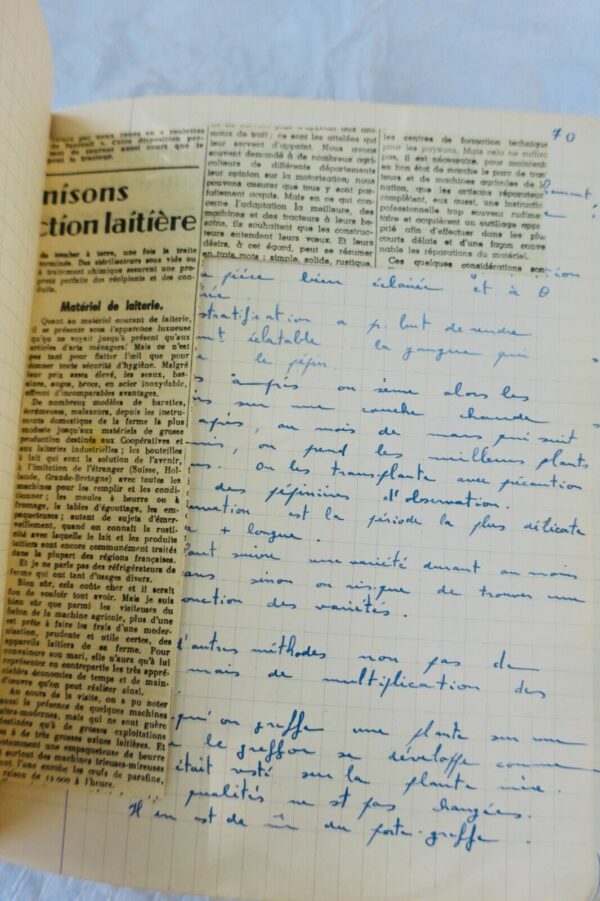 70
de l'anteuil ». Cette disposition per-
met de tourner aussi court que le
peut le tracteur.
nisons
ction laitière
de tomber à terre, une fois le traite
terminée. Des stérilisateurs sous vide ou
à traitement chimique assurent une pro-
preté parfaite des récipients et des con-
duits.
Matériel de laiterie.
Quant au matériel courant de laiterie,
il se présente sous l'apparence luxueuse
qu'on ne voyait jusqu'à présent qu'aux
articles d'arts ménagers. Mais ce n'est
pas tant pour flatter l'œil que pour
donner toute sécurité d'hygiène. Malgré
leur prix assez élevé, les seaux, bas-
sines, auges, brocs, en acier inoxydable,
offrent d'incomparables avantages.
De nombreux modèles de barattes,
écrémeuses, malaxeurs, depuis les instru-
ments domestique de la ferme la plus
modeste jusqu'aux matériels de grosse
production destinés aux Coopératives et
aux laiteries industrielles ; les bouteilles
à lait qui sont la solution de l'avenir,
à l'imitation de l'étranger (Suisse, Hol-
lande, Grande-Bretagne) avec toutes les
machines pour les remplir et les condi-
tionner ; les moules à beurre ou à
fromage, le tables d'égouttage, les em-
paqueteuses ; autant de sujets d'émer-
veillement, quand on connaît la rusti-
cité avec laquelle le lait et les produits
laitiers sont encore communément traités
dans la plupart des régions françaises.
Et je ne parle pas des réfrigérateurs de
ferme qui ont tant d'usages divers.
Bien sûr, cela coûte cher et il serait
fou de vouloir tout avoir. Mais je suis
bien sûr que parmi les visiteurs du
Salon de la machine agricole, plus d'une
est prête à faire les frais d'une moder-
nisation, prudente et utile certes, des
appareils laitiers de sa ferme. Pour
convaincre son mari, elle n'aura qu'à lui
représenter en contrepartie les très appré-
ciables économies de temps et de main-
d'œuvre qu'on peut réaliser ainsi.
Au cours de la visite, on a pu noter
aussi la présence de quelques machines
ultra-modernes, mais qui ne sont guère
destinées qu'à de grosses exploitations
ou à de très grosses usines laitières. Et
notamment une empaqueteuse de beurre
et surtout des machines trieuses-mireuses
dont l'une enrobe les œufs de parafine,
à raison de 12 000 à l'heure.
maux de trait ; ce sont les attelées qui
leur servent d'appoint. Nous avons
souvent demandé à de nombreux agri-
culteurs de différents départements
leur opinion sur la motorisation; nous
pouvons assurer que tous y sont par-
faitement acquis. Mais en ce qui con-
cerne l'adaptation la meilleure, des
machines et des tracteurs à leurs be-
soins, ils souhaitent que les construc-
teurs entendent leurs vœux. Et leurs
désirs, à cet égard, peut se résumer
en trois mots : simple, solide, rustique.
les centres de formation technique
pour les paysans. Mais cela ne suffira
pas, il est nécessaire, pour maintenir
en bon état de marche le parc de trac-
teurs et de machines agricoles de la
nation, que les artisans réparateurs
complètent, eux aussi, une instruction
professionnelle trop souvent rudimen-
taire et acquièrent un outillage appro-
prié afin d'effectuer dans les plus
courts délais et d'une façon conve-
nable les réparations du matériel.
Ces quelques considérations sont
pièce bien éclairée et à θ
stratification a p. but de rendre
éclatable la gangue qui
le pépin.
après on sème alors les
sur une couche chaude
après, au mois de mars qui suit
on prend les meilleurs plants
On les transplante avec précaution
des pépinières d'observation.
est la période la plus délicate
+ longue.
faut suivre une variété durant au moins
ans sinon on risque de trouver une
des variétés.
d'autres méthodes non pas de
mais de multiplication des
qu'on greffe une plante sur une
le greffon se développe comme
était resté sur la plante mère.
qualités ne st pas changées.
Il en est de m̂ du porte-greffe.